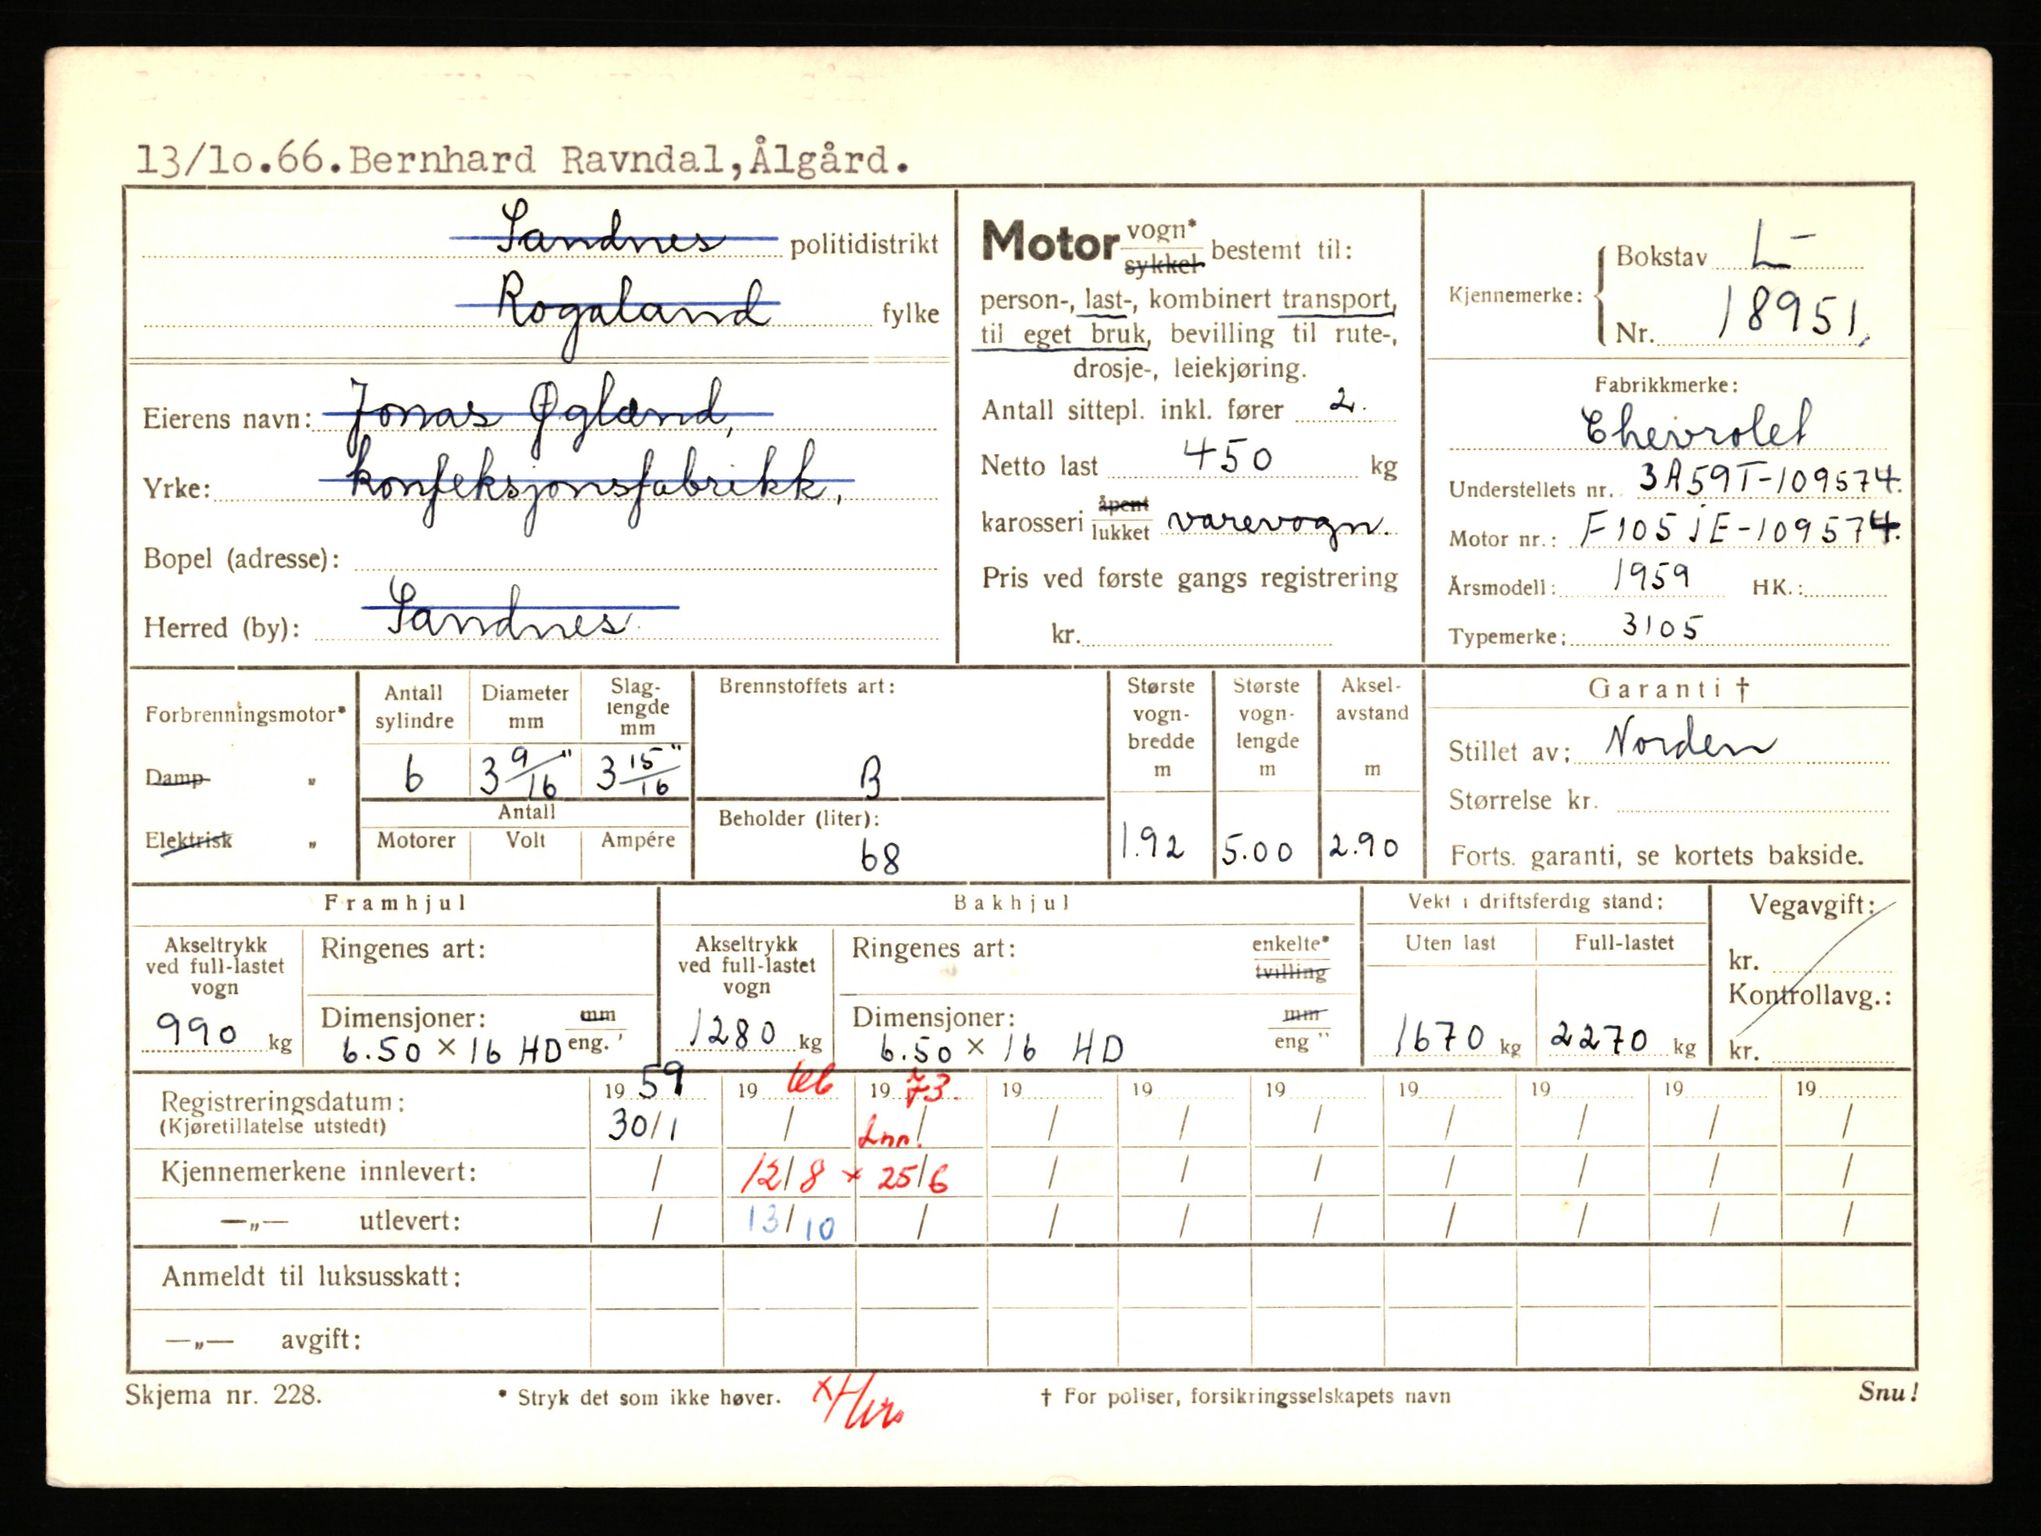 13/10.66.Bernhard Ravndal,Ålgård.
Sandnes politidistrikt
Rogaland fylke
Eierens navn: Jonas Øglænd,
Yrke: konfeksjonsfabrikk,
Bopel (adresse):
Herred (by): Sandnes.
Motor vogn* sykkel bestemt til:
person-, last-, kombinert transport,
til eget bruk, bevilling til rute-,
drosje-, leiekjøring.
Antall sittepl. inkl. fører 2.
Netto last 450 kg
karosseri åpent lukket varevogn.
Pris ved første gangs registrering
kr.
Kjennemerke: Bokstav L-
Nr. 18951.
Fabrikkmerke:
Chevrolet
Understellets nr. 3A59T-109574.
Motor nr.: F105JE-109574.
Årsmodell: 1959 HK.:
Typemerke: 3105
Forbrenningsmotor*
Damp „
Elektrisk „
Antall sylindre 6
Diameter mm 3 9/16"
Slaglengde mm 3 15/16"
Antall
Motorer Volt Ampére
Brennstoffets art:
B
Beholder (liter):
68
Største vognbredde m 1.92
Største vognlengde m 5.00
Akselavstand m 2.90
Garanti †
Stillet av: Norden
Størrelse kr.
Forts. garanti, se kortets bakside.
Framhjul
Akseltrykk ved full-lastet vogn
990 kg
Ringenes art:
Dimensjoner: mm
6.50 × 16 HD eng. '
Bakhjul
Akseltrykk ved full-lastet vogn
1280 kg
Ringenes art: enkelte* tvilling
Dimensjoner: mm
6.50 × 16 HD eng "
Vekt i driftsferdig stand:
Uten last Full-lastet
1670 kg 2270 kg
Vegavgift:
kr.
Kontrollavg.:
kr.
19 59 19 66 19 73 19 19 19 19 19 19 19
Registreringsdatum: 30/1 / / / / / / / / /
(Kjøretillatelse utstedt) Inn.
Kjennemerkene innlevert: / 12/8 × 25/6 / / / / / / /
—„— utlevert: / 13/10 / / / / / / / /
Anmeldt til luksusskatt:
—„— avgift:
Skjema nr. 228. * Stryk det som ikke høver. † For poliser, forsikringsselskapets navn Snu!